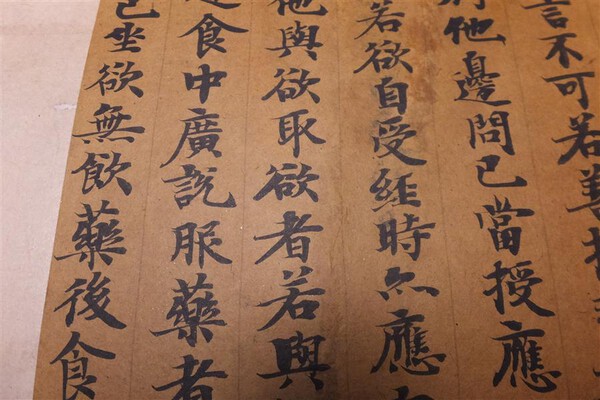 言不可若善
他邊問已當授應
若欲自受經時亦應
他與欲取欲者若與
食中廣說服藥者
已坐欲無飲藥後食